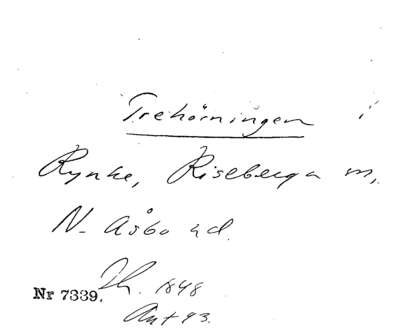 Trehörningen i
Rynke, Riseberga sn,
N. Åsbo hd.
Th. 1848
Nr 7339.
Ant 93.